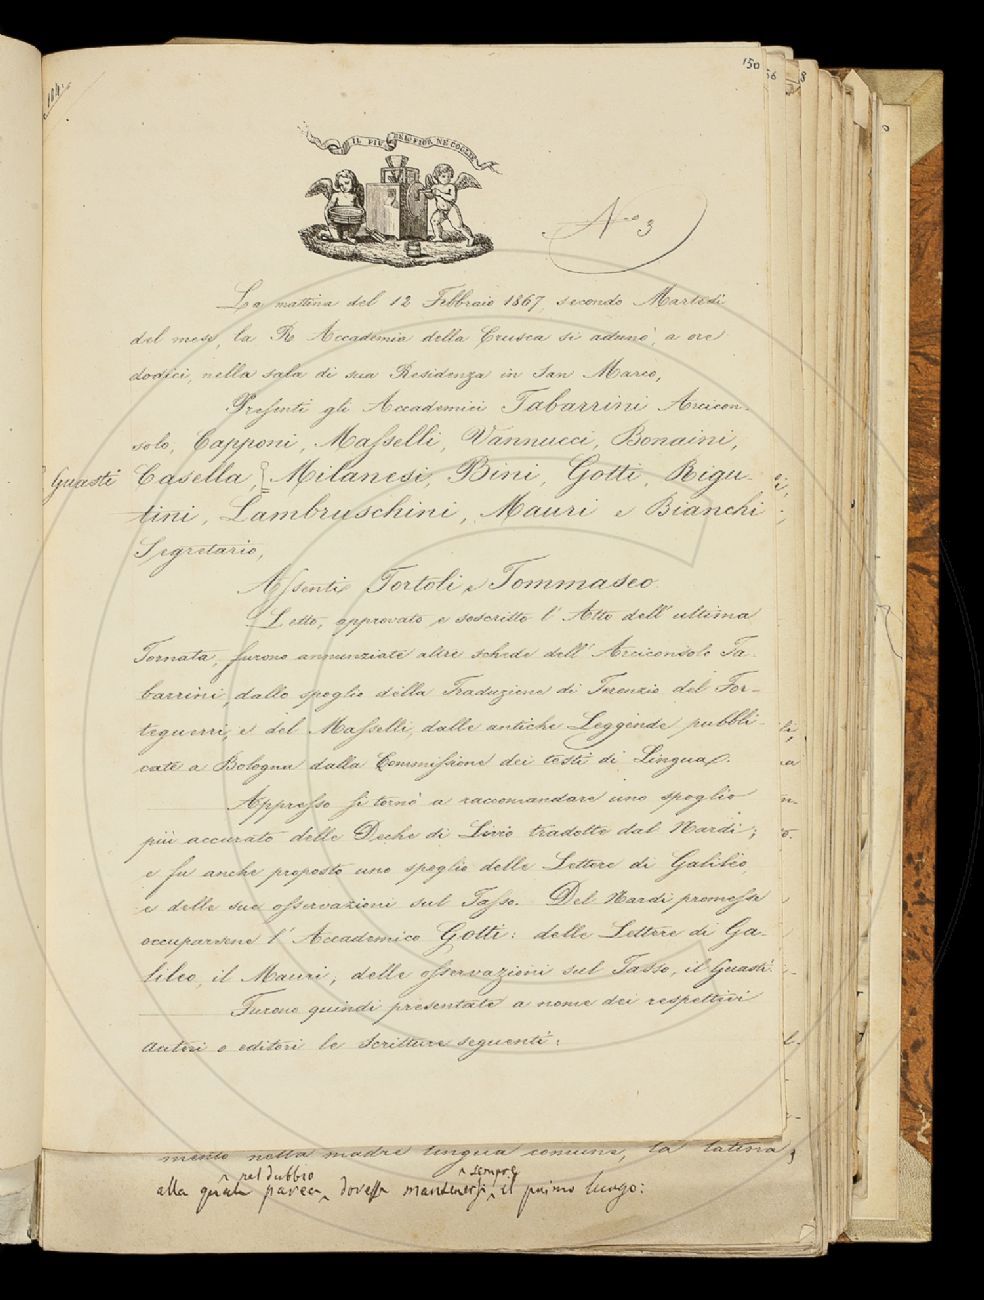 150
104.
56
8
IL PIÙ BEL FIOR NE COGLIE
No 3
La mattina del 12 Febbraio 1867, secondo Martedì
del mese, la R Accademia della Crusca si adunò, a ore
dodici, nella sala di sua Residenza in San Marco,
Presenti gli Accademici Tabarrini Arcicon-
solo, Capponi, Masselli, Vannucci, Bonaini,
Guasti Casella, Milanesi, Bini, Gotti, Rigu-
tini, Lambruschini, Mauri e Bianchi
Segretario,
Assenti Tortoli e Tommaseo.
Letto, approvato e soscritto l'Atto dell'ultima
Tornata, furono annunziate altre schede dell'Arciconsolo Ta-
barrini, dallo spoglio della Traduzione di Terenzio del For-
teguerri, e del Masselli, dalle antiche Leggende pubbli-
cate a Bologna dalla Commissione dei testi di Lingua.
Appresso si tornò a raccomandare uno spoglio
più accurato delle Deche di Livio tradotte dal Nardi;
e fu anche proposto uno spoglio delle Lettere di Galileo,
e delle sue osservazioni sul Tasso. Del Nardi promesse
occuparsene l'Accademico Gotti: delle Lettere di Ga-
lileo, il Mauri; delle osservazioni sul Tasso, il Guasti.
Furono quindi presentate a nome dei respettivi
autori o editori le scritture seguenti:
mente nella madre lingua comune, la latina,
nel dubbio sempre
alla quale parea dovesse mantenersi il primo luogo: